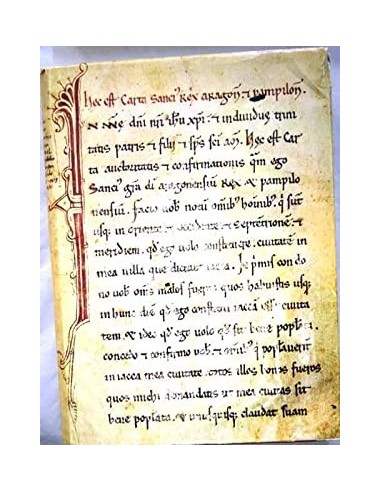 hec est Carta Sancii Rex aragon⁊ et pampilon⁊.
N Nōe dn̄i nr̄i ih̄u xp̄i et indiuidue trini
tatis patris et filii et sp̄s sc̄i am̄. Hec est Car
ta auctoritatis et confirmationis qm̄ ego
Sanci⁹ gr̄a di aragonensium Rex et pampilo
nensium. facio uob notari om̄ib; hoīnib; q̄ sūt
usq; in oriente et occidente et septentrionē et
meridiem. qd ego uolo constituere ciuitatē in
mea uilla que dicitur iacca.
no uob om̄s malos fueros quos habuistis usq;
in hunc diē qd ego constitui iaccā ēē ciuita
tem. et ideo qd ego uolo q̄ sit bene popl̄ata.
concedo et confirmo uob et om̄ib; q̄ poplauerint
in iacca mea ciuitate totos illos bonos fueros
quos michi demandatis ut mea ciuitas sit
bene poplata. et unusquisq; claudat suam